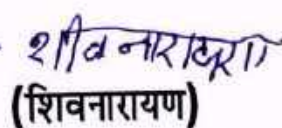 शिवनारायण
(शिवनारायण)